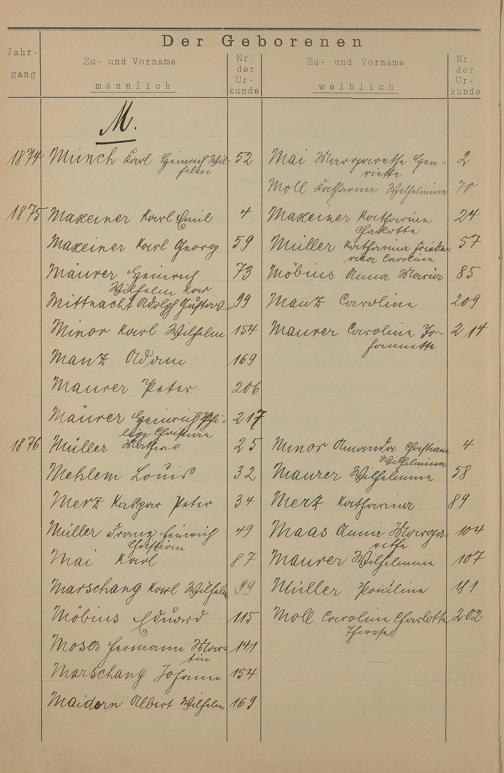 Der Geborenen
Jahr-
gang
Zu- und Vorname
männlich
Nr.
der
Ur-
kunde
Zu- und Vorname
weiblich
Nr.
der
Ur-
kunde
M.
1874 Münch Karl Heinrich Wil- 52 Mai Margarethe Hen- 2
helm riette
Moll Katharine Wilhelmine 70
1875 Maxeiner Karl Emil 4 Maxeiner Katharina 24
Charlotte
Maxeiner Karl Georg 59 Müller Katharina Friede- 57
rika Caroline
Mäurer Heinrich 73 Möbius Anna Maria 85
Wilhelm Karl
Mittnacht Adolph Gustav 99 Manz Caroline 209
Minor Karl Wilhelm 154 Maurer Caroline Jo- 214
hannette
Manz Adam 169
Maurer Peter 206
Mäurer Heinrich Phi- 217
lipp Christian
1876 Müller Mathias 25 Minor Amanda Christiane 4
Wilhelmine
Mehlem Louis 32 Maurer Wilhelmine 58
Merz Kaspar Peter 34 Merz Katharina 89
Müller Franz Heinrich 49 Maas Anna Marga- 104
Christian rethe
Mai Karl 87 Maurer Wilhelmine 107
Marschang Karl Wilhelm 99 Müller Pauline 181
Möbius Eduard 115 Moll Caroline Charlotte 202
Therese
Moser Hermann Mar- 141
tin
Marschang Johann 154
Maidorn Albert Wilhelm 169